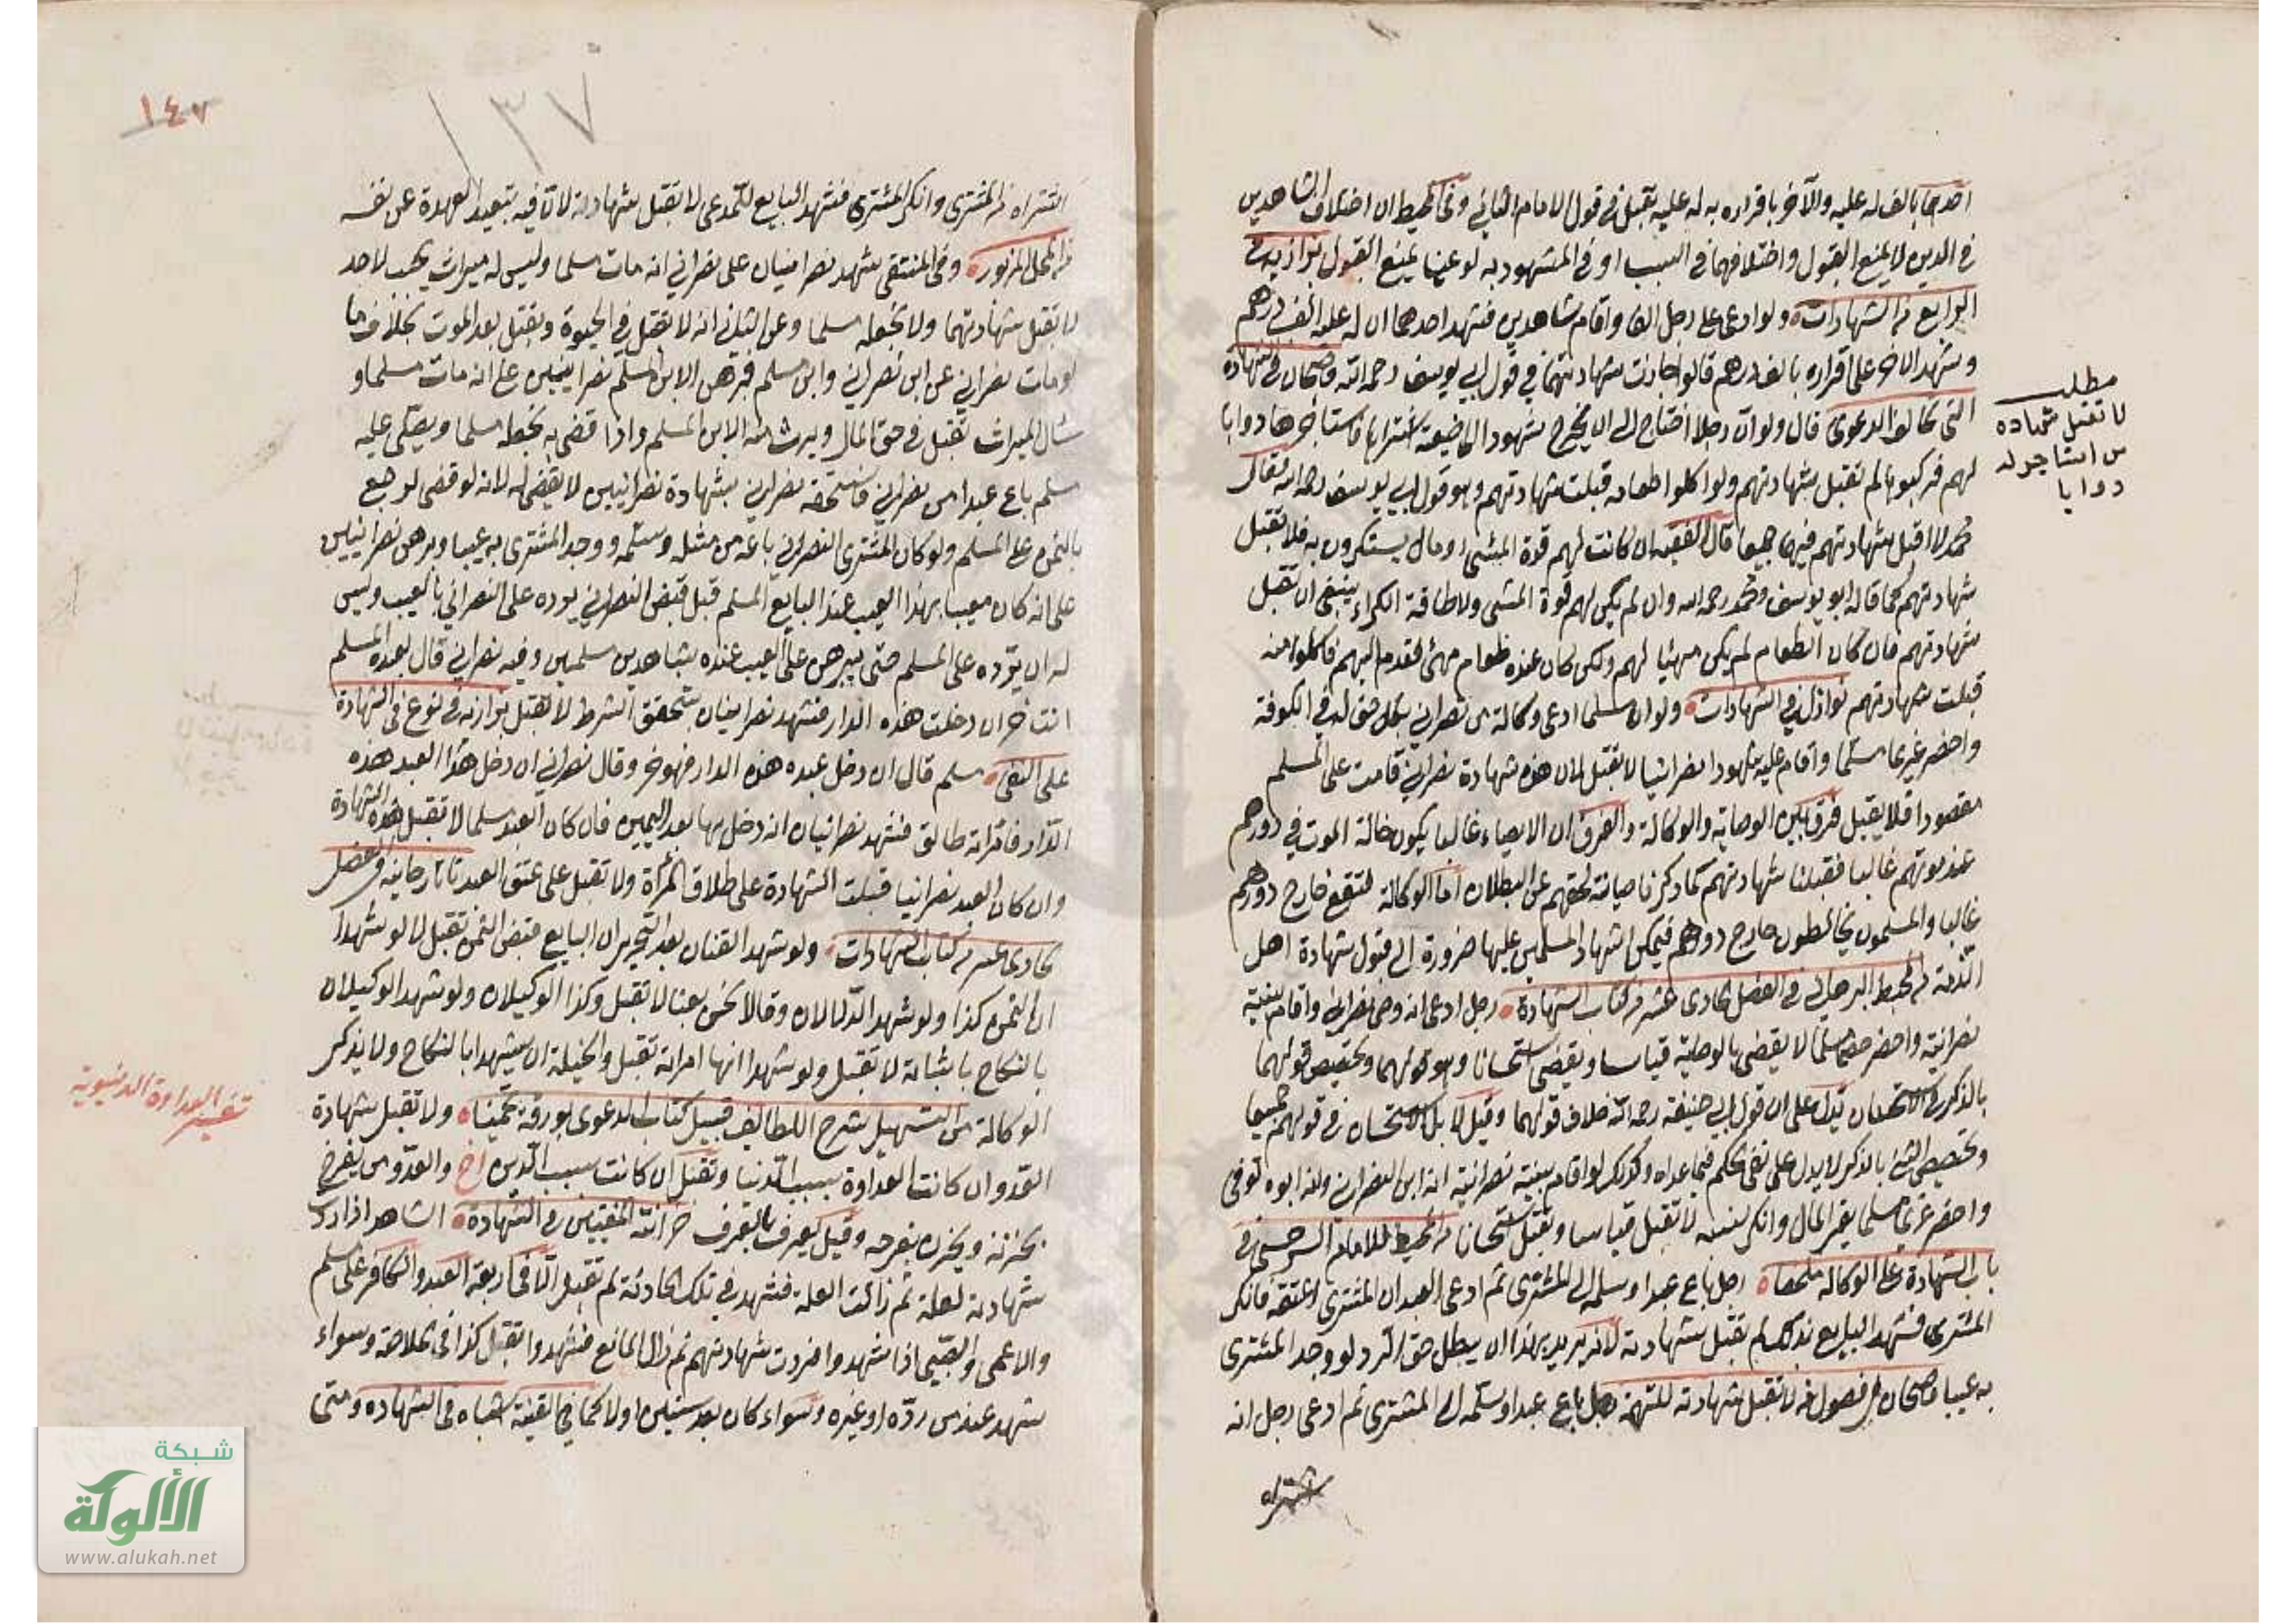 احدهما بالف له عليه والآخر باقراره به له عليه تقبل في قول الامام الثاني وفي المحيط ان اختلاف الشاهدين
في الدين لا يمنع القبول واختلافهما في السبب او في المشهود به لو عينا يمنع القبول بزازيه في
الرابع من الشهادات ولو ادعى على رجل الفا واقام شاهدين فشهد احدهما ان له عليه الف درهم
وشهد الاخر على اقراره بالف درهم قالوا جازت شهادتهما في قول ابي يوسف رحمه الله قاضيخان في شهادة
التي تخالف الدعوى قال ولو ان رجلا احتاج الى ان يخرج شهودا الى ضيعة اشتراها فاستاجر لها دوابا
لهم فركبوها لم تقبل شهادتهم ولو اكلوا طعامه قبلت شهادتهم وهو قول ابي يوسف رحمه الله تعالى
محمد لا اقبل شهادتهم فيهما جميعا قال الفقيه ان كانت لهم قوة المشي او مال يستكرون به فلا تقبل
شهادتهم كما قاله ابو يوسف ومحمد رحمه الله وان لم يكن لهم قوة المشي ولا طاقة الكراء ينبغي ان تقبل
شهادتهم فان كان الطعام لم يكن مهيئا لهم ولكن كان عنده طعام مهيئ فقدم اليهم فاكلوا منه
قبلت شهادتهم نوازل في الشهادات ولو ان مسلما ادعى وكالة من نصراني بكل حق له في الكوفة
واحضر غريما مسلما واقام عليه شهودا نصرانيا لا يقبل لان هذه شهادة نصراني قامت على المسلم
مقصودا فلا يقبل فرق بين الوصاية والوكالة والفرق ان الايصاء غالبا يكون حالة الموت في دورهم
عند موتهم غالبا فقبلنا شهادتهم كما ذكرنا صيانة لحقهم عن البطلان اما الوكالة فتقع خارج دورهم
غالبا والمسلمون يخالطون خارج دورهم فيمكن اشهاد المسلمين عليها ضرورة الى قبول شهادة اهل
الذمة من محيط البرهاني في الفصل الحادي عشر من كتاب الشهادة رجل ادعى انه وصي نصراني واقام بينة
نصرانية واحضر خصما مسلما لا يقضى بالوصاية قياسا ويقضى استحسانا وهو قولهما وتخصيص قولهما
بالذكر في الاستحسان يدل على ان قول ابي حنيفة رحمه الله خلاف قولهما وقيل لا بل الاستحسان في قولهم جميعا
وتخصيص الشئ بالذكر لا يدل على نفي الحكم فيما عداه وكذلك لو اقام بينة نصرانية انه ابن النصراني وان ابوه توفي
واحضر غريما مسلما يقر بالمال وانكر بنسبه لا تقبل قياسا وتقبل استحسانا من المحيط للامام السرخسي في
باب الشهادة على الوكالة ملخصا رجل باع عبدا وسلمه الى المشتري ثم ادعى العبد ان المشتري اعتقه فانكر
المشتري فشهد البايع بذلك لم تقبل شهادته لانه يريد بهذا ان يبطل حق الرد لو وجد المشتري
به عيبا قاضيخان في فصول من لا تقبل شهادته للتهمة رجل باع عبدا وسلمه الى المشتري ثم ادعى رجل انه
اشتراه
مطلب
لا تقبل شهاده
من استاجر له
دوابا
١٤٧
١٣٧
اشتراه من المشتري وانكر المشتري فشهد البايع للمدعي لا تقبل شهادته لان فيه تبعيد العهدة عن نفسه
من المحل المزبور وفي المنتقى شهد نصرانيان على نصراني انه مات مسلما وليس له ميراث يجب لاحد
لا تقبل شهادتهما ولا نجعله مسلما وعن الثاني انه لا تقبل في الحيوة وتقبل بعد الموت بخلاف ما
لو مات نصراني عن ابن نصراني وابن مسلم فبرهن الابن المسلم نصرانيين على انه مات مسلما و
سئال الميراث تقبل في حق المال ويرث منه الابن المسلم واذا قضى به نجعله مسلما ويصلى عليه
مسلم باع عبدا من نصراني فاستحقه نصراني بشهادة نصرانيين لا يقضى له لانه لو قضى لرجع
بالثمن على المسلم ولو كان المشتري النصراني باعه من مثله وسلمه ووجد المشتري به عيبا وبرهن نصرانيين
على انه كان معيبا بهذا العيب عند البايع المسلم قبل قبض النصراني يرده على النصراني بالعيب وليس
له ان يرده على المسلم حتى يبرهن على العيب عنده بشاهدين مسلمين وفيه نصراني قال لعبده المسلم
انت حر ان دخلت هذه الدار فشهد نصرانيان بتحقق الشرط لا تقبل بزازيه في نوع في الشهادة
على النفي مسلم قال ان دخل عبده هذه الدار فهو حر وقال نصراني ان دخل هذا العبد هذه
الدار فامراته طالق فشهد نصرانيان انه دخل بها بعد اليمين فان كان العبد مسلما لا تقبل هذه الشهادة
وان كان العبد نصرانيا قبلت الشهادة على طلاق المرأة ولا تقبل على عتق العبد تاتارخانيه في الفصل
الحادي عشر من كتاب الشهادات ولو شهد القنان بعد التحرير ان البايع قبض الثمن تقبل لا لو شهدا
ان الثمن كذا ولو شهد الدلالان وقالا نحن بعنا لا تقبل وكذا الوكيلان ولو شهد الوكيلان
بالنكاح باثباته لا تقبل ولو شهدا انها امراته تقبل والحيلة ان يشهدا بالنكاح ولا يذكر
الوكالة من التسهيل شرح اللطائف قبيل كتاب الدعوى بورقة تخمينا ولا تقبل شهادة
العدو ان كانت العداوة بسبب الدنيا وتقبل ان كانت بسبب الدين اخ والعدو من يفرح
بحزنه ويحزن بفرحه وقيل يعرف بالعرف خزانة المفتيين في الشهادة الشاهد اذا رد
شهادته لعلة ثم زالت العلة فشهد في تلك الحادثة لم تقبل الا في اربعة العبد والكافر على مسلم
والاعمى والصبي اذا شهدوا فردت شهادتهم ثم زال المانع فشهدوا تقبل كذا في الخلاصة وسواء
شهد عند من رده او غيره وسواء كان بعد سنتين اولا كما في القنية اشباه في الشهاده ومتى
تفسير العداوة الدنيوية
شبكة
الألوكة
www.alukah.net